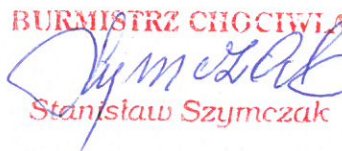 BURMISTRZ CHOCIWLA
Szymczak
Stanisław Szymczak